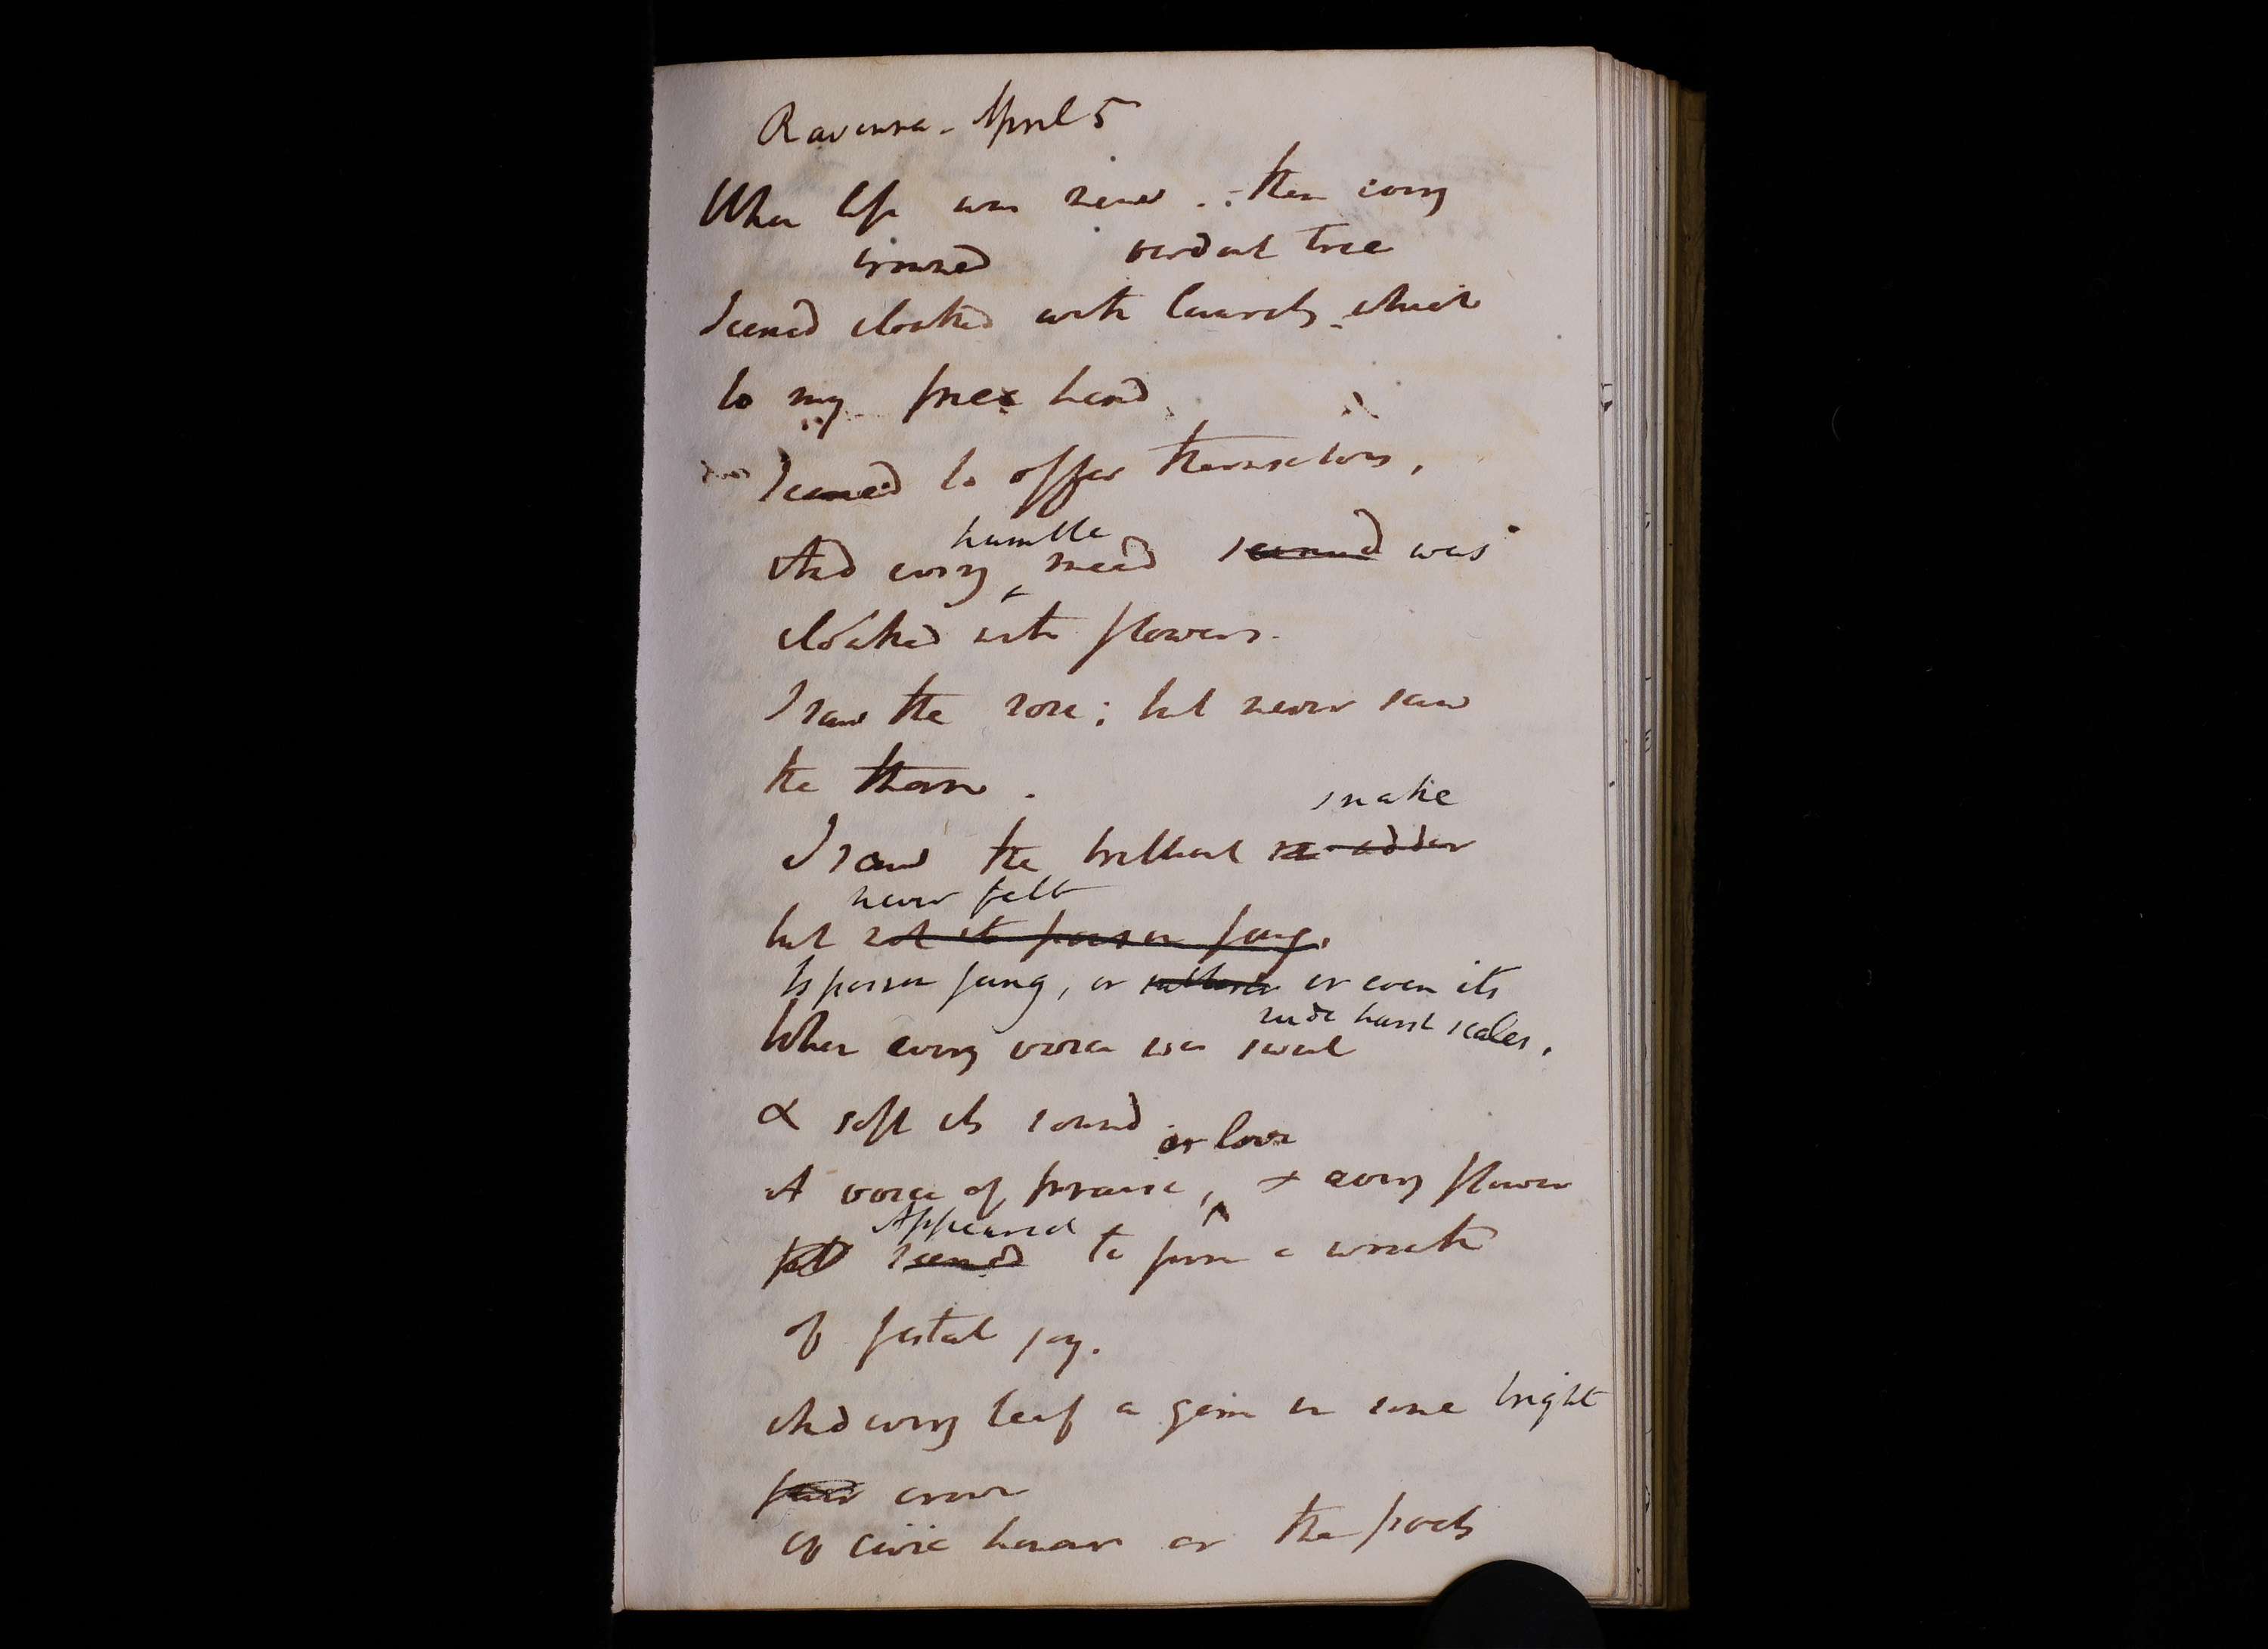 Ravenna - April 5
When life was new .. then every
crowned verdant tree
Seemed cloathed with laurels - which
to my free hand
Seemed to offer themselves,
humble
And every mead seemed was
cloathed with flowers.
I saw the rose; but never saw
the thorn.
snake
I saw the brilliant adder
never felt
but not its poison fang.
Its poison fang, or or even its
rude harsh scales.
When every voice was sweet
& soft its sound
or love
A voice of praise, & every flower
Appeared
seemed to form a wreath
of festal joy.
And every leaf a gem in some bright
crown
of civic honour or the poets